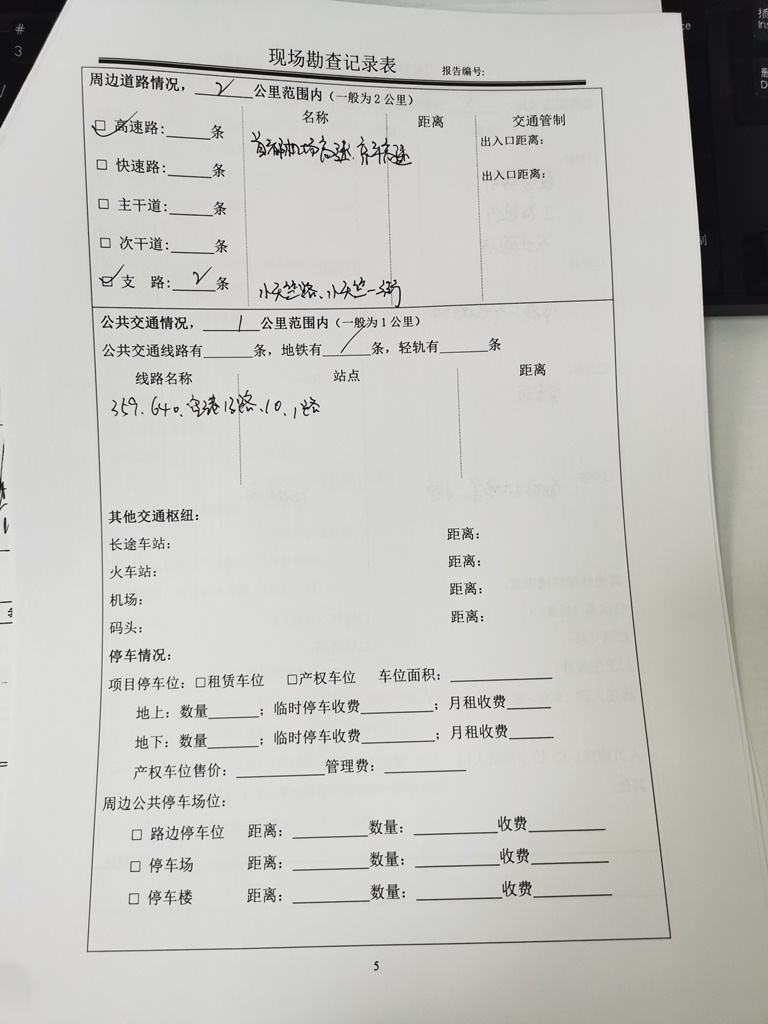 现场勘查记录表
报告编号:
周边道路情况，2公里范围内（一般为2公里）
名称 距离 交通管制
☑ 高速路:____条 首都机场高速、京平高速 出入口距离:
□ 快速路:____条 出入口距离:
□ 主干道:____条
□ 次干道:____条
☑ 支 路:2条 小天竺路、小天竺一街
公共交通情况，1公里范围内（一般为1公里）
公共交通线路有____条，地铁有/条，轻轨有____条
线路名称 站点 距离
359、640、空港13路、10、1路
其他交通枢纽:
长途车站: 距离:
火车站: 距离:
机场: 距离:
码头: 距离:
停车情况:
项目停车位: □租赁车位 □产权车位 车位面积:____
地上: 数量____; 临时停车收费____; 月租收费____
地下: 数量____; 临时停车收费____; 月租收费____
产权车位售价:____管理费:____
周边公共停车场位:
□ 路边停车位 距离:____数量:____收费____
□ 停车场 距离:____数量:____收费____
□ 停车楼 距离:____数量:____收费____
5